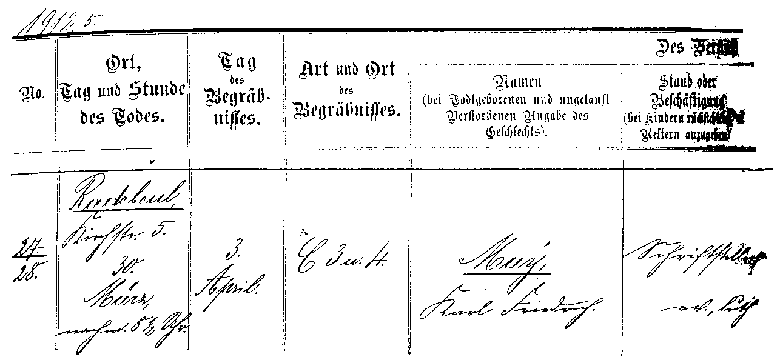 1912. 5.
No.
Ort,
Tag und Stunde
des Todes.
Tag
des
Begräb-
nisses.
Art und Ort
des
Begräbnisses.
Des
Namen
(bei Todtgeborenen und ungetauft
Verstorbenen Angabe des
Geschlechts).
Stand oder
Beschäftigung
(bei Kindern
Aeltern anzugeben
27
28.
Radebeul,
Kirchstr. 5.
30.
März,
nachm. Uhr
3.
April.
C 3 u. 4.
May,
Karl Friedrich.
Schriftsteller
ev. luth